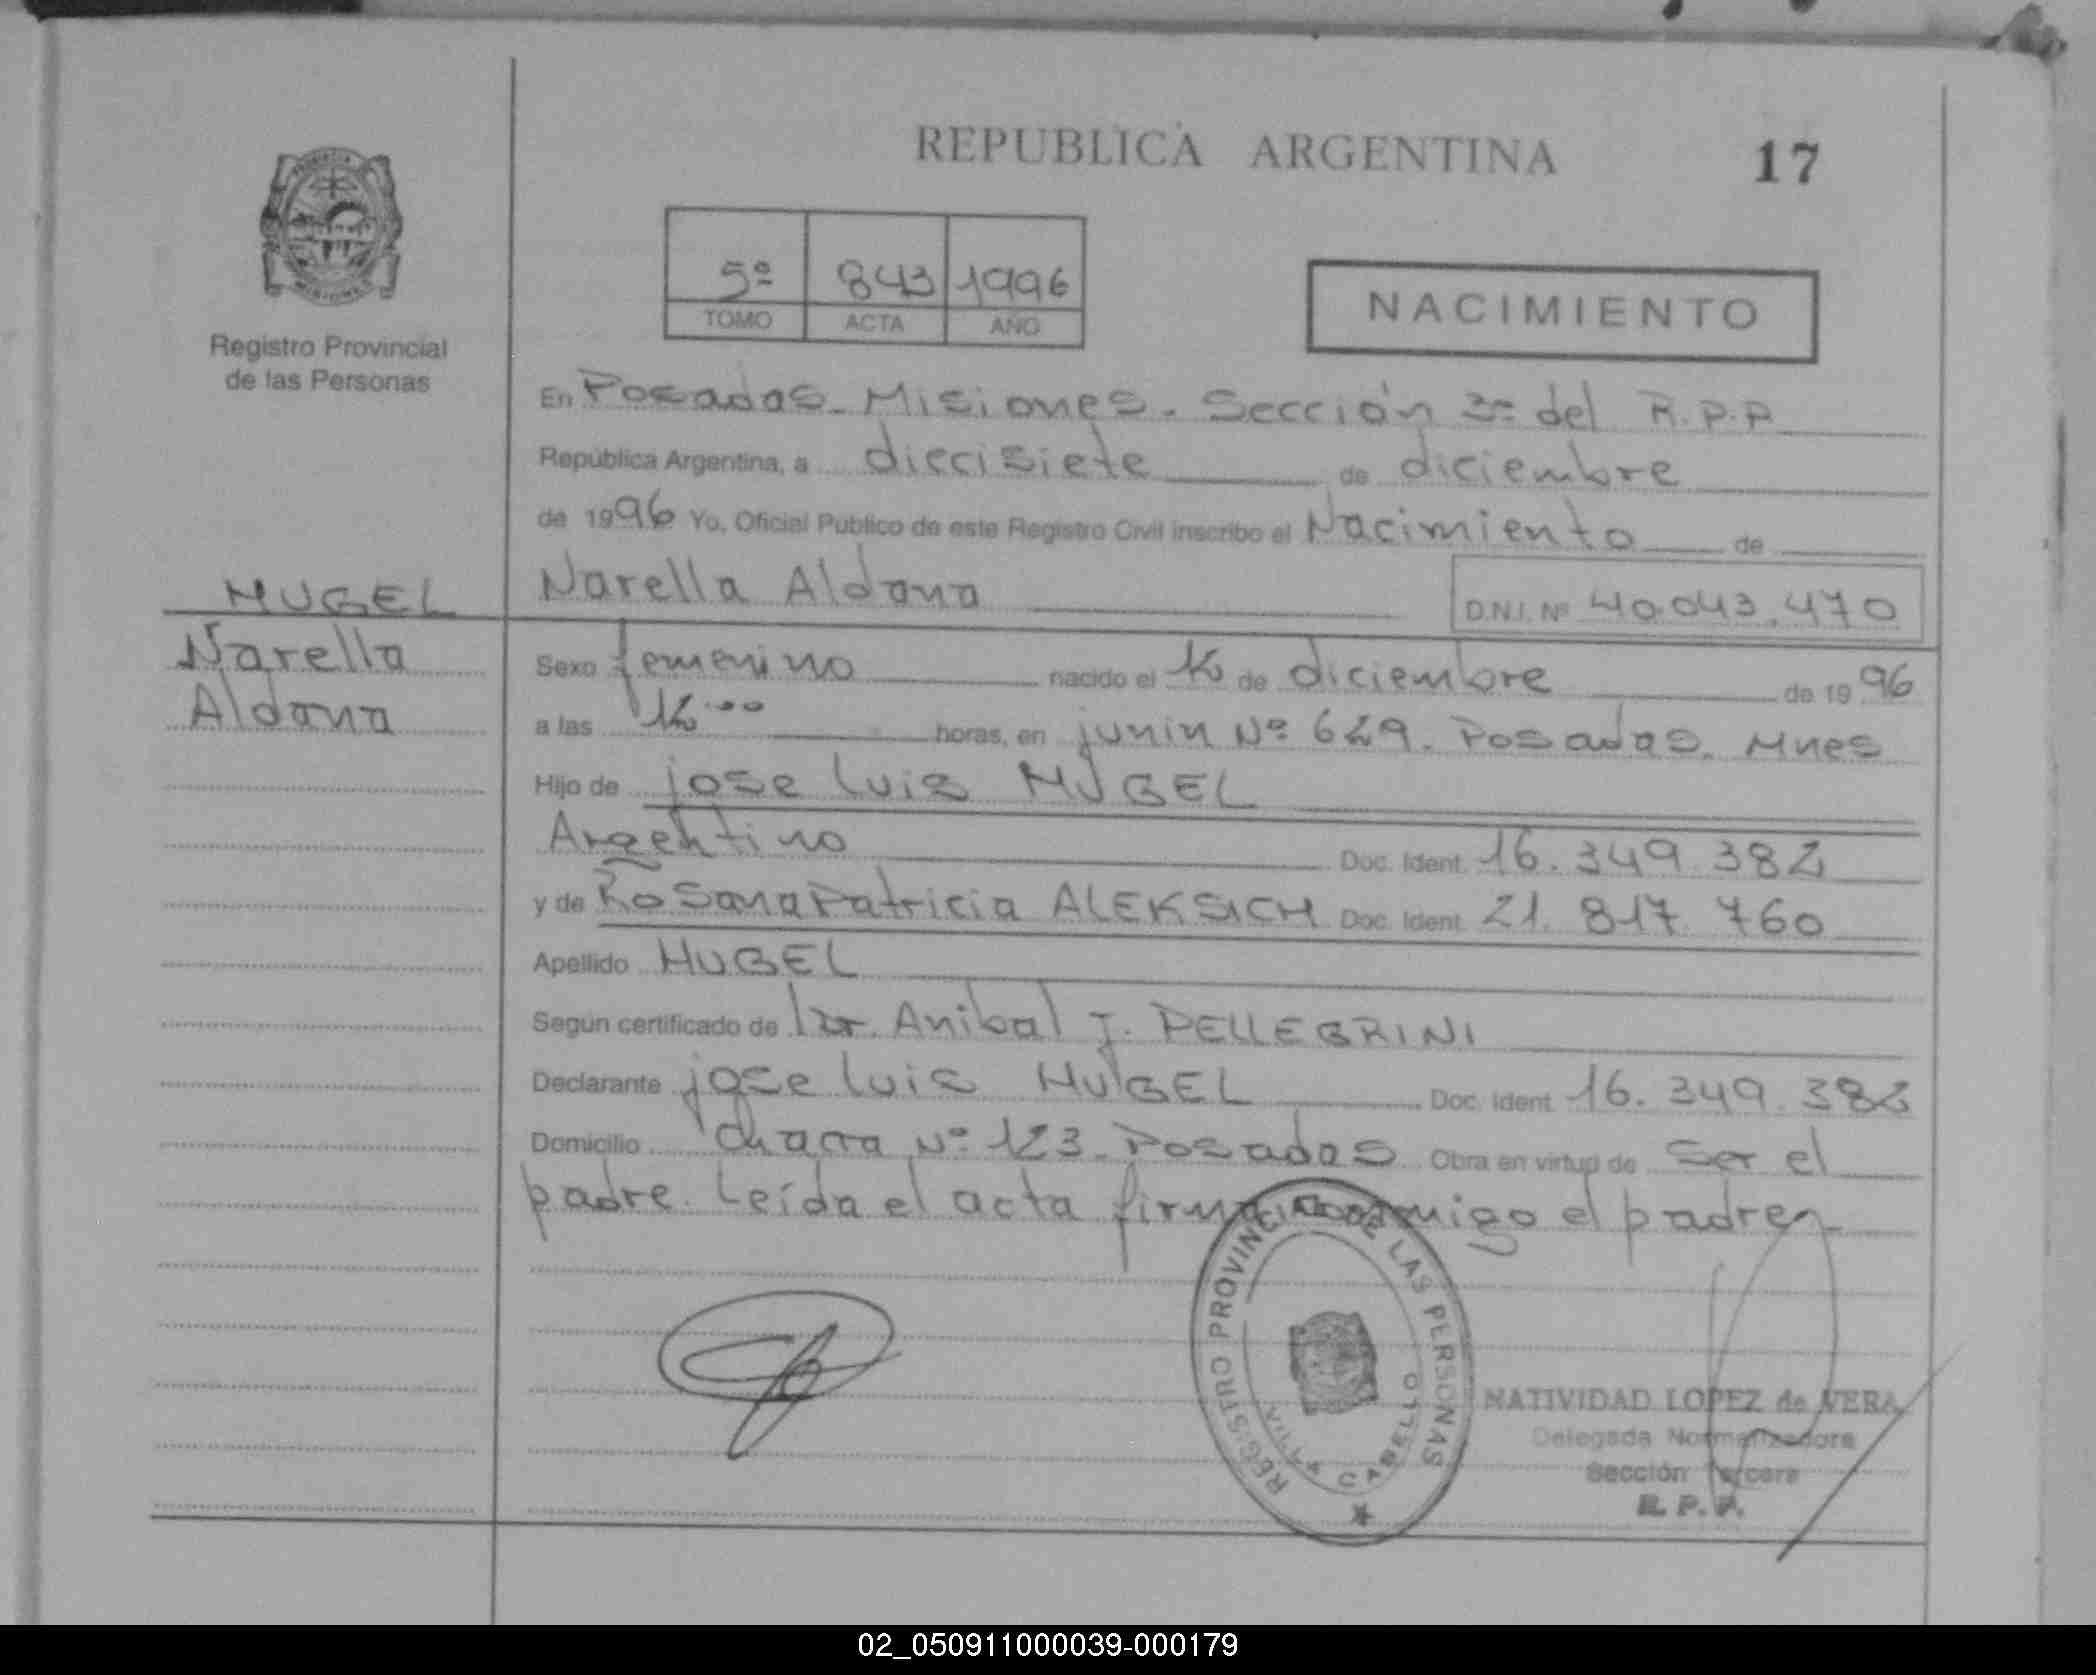 REPUBLICA ARGENTINA
17
PROVINCIA
MISIONES
Registro Provincial
de las Personas
5º 843 1996
TOMO ACTA AÑO
NACIMIENTO
En Posadas. Misiones. Sección 3ª del R.P.P
República Argentina, a diecisiete de diciembre
de 1996 Yo, Oficial Público de este Registro Civil inscribo el Nacimiento de
Narella Aldana D.N.I. Nº 40.043.470
MUGEL
Narella
Aldana
Sexo femenino nacido el de diciembre de 1996
a las horas, en junin Nº 629. Posadas. Mnes
Hijo de jose luis MUGEL
Argentino Doc. Ident. 16.349.382
y de Rosana Patricia ALEKSICH Doc. Ident. 21.817.760
Apellido MUGEL
Según certificado de Dr. Anibal J. PELLEGRINI
Declarante jose luis MUGEL Doc. Ident. 16.349.382
Domicilio Chacra Nº 123. Posadas Obra en virtud de ser el
padre. Leída el acta firma conmigo el padre
REGISTRO PROVINCIAL DE LAS PERSONAS
VILLA CABELLO
NATIVIDAD LOPEZ de VERA
Delegada Normalizadora
Sección Tercera
R. P. P.
02_050911000039-000179